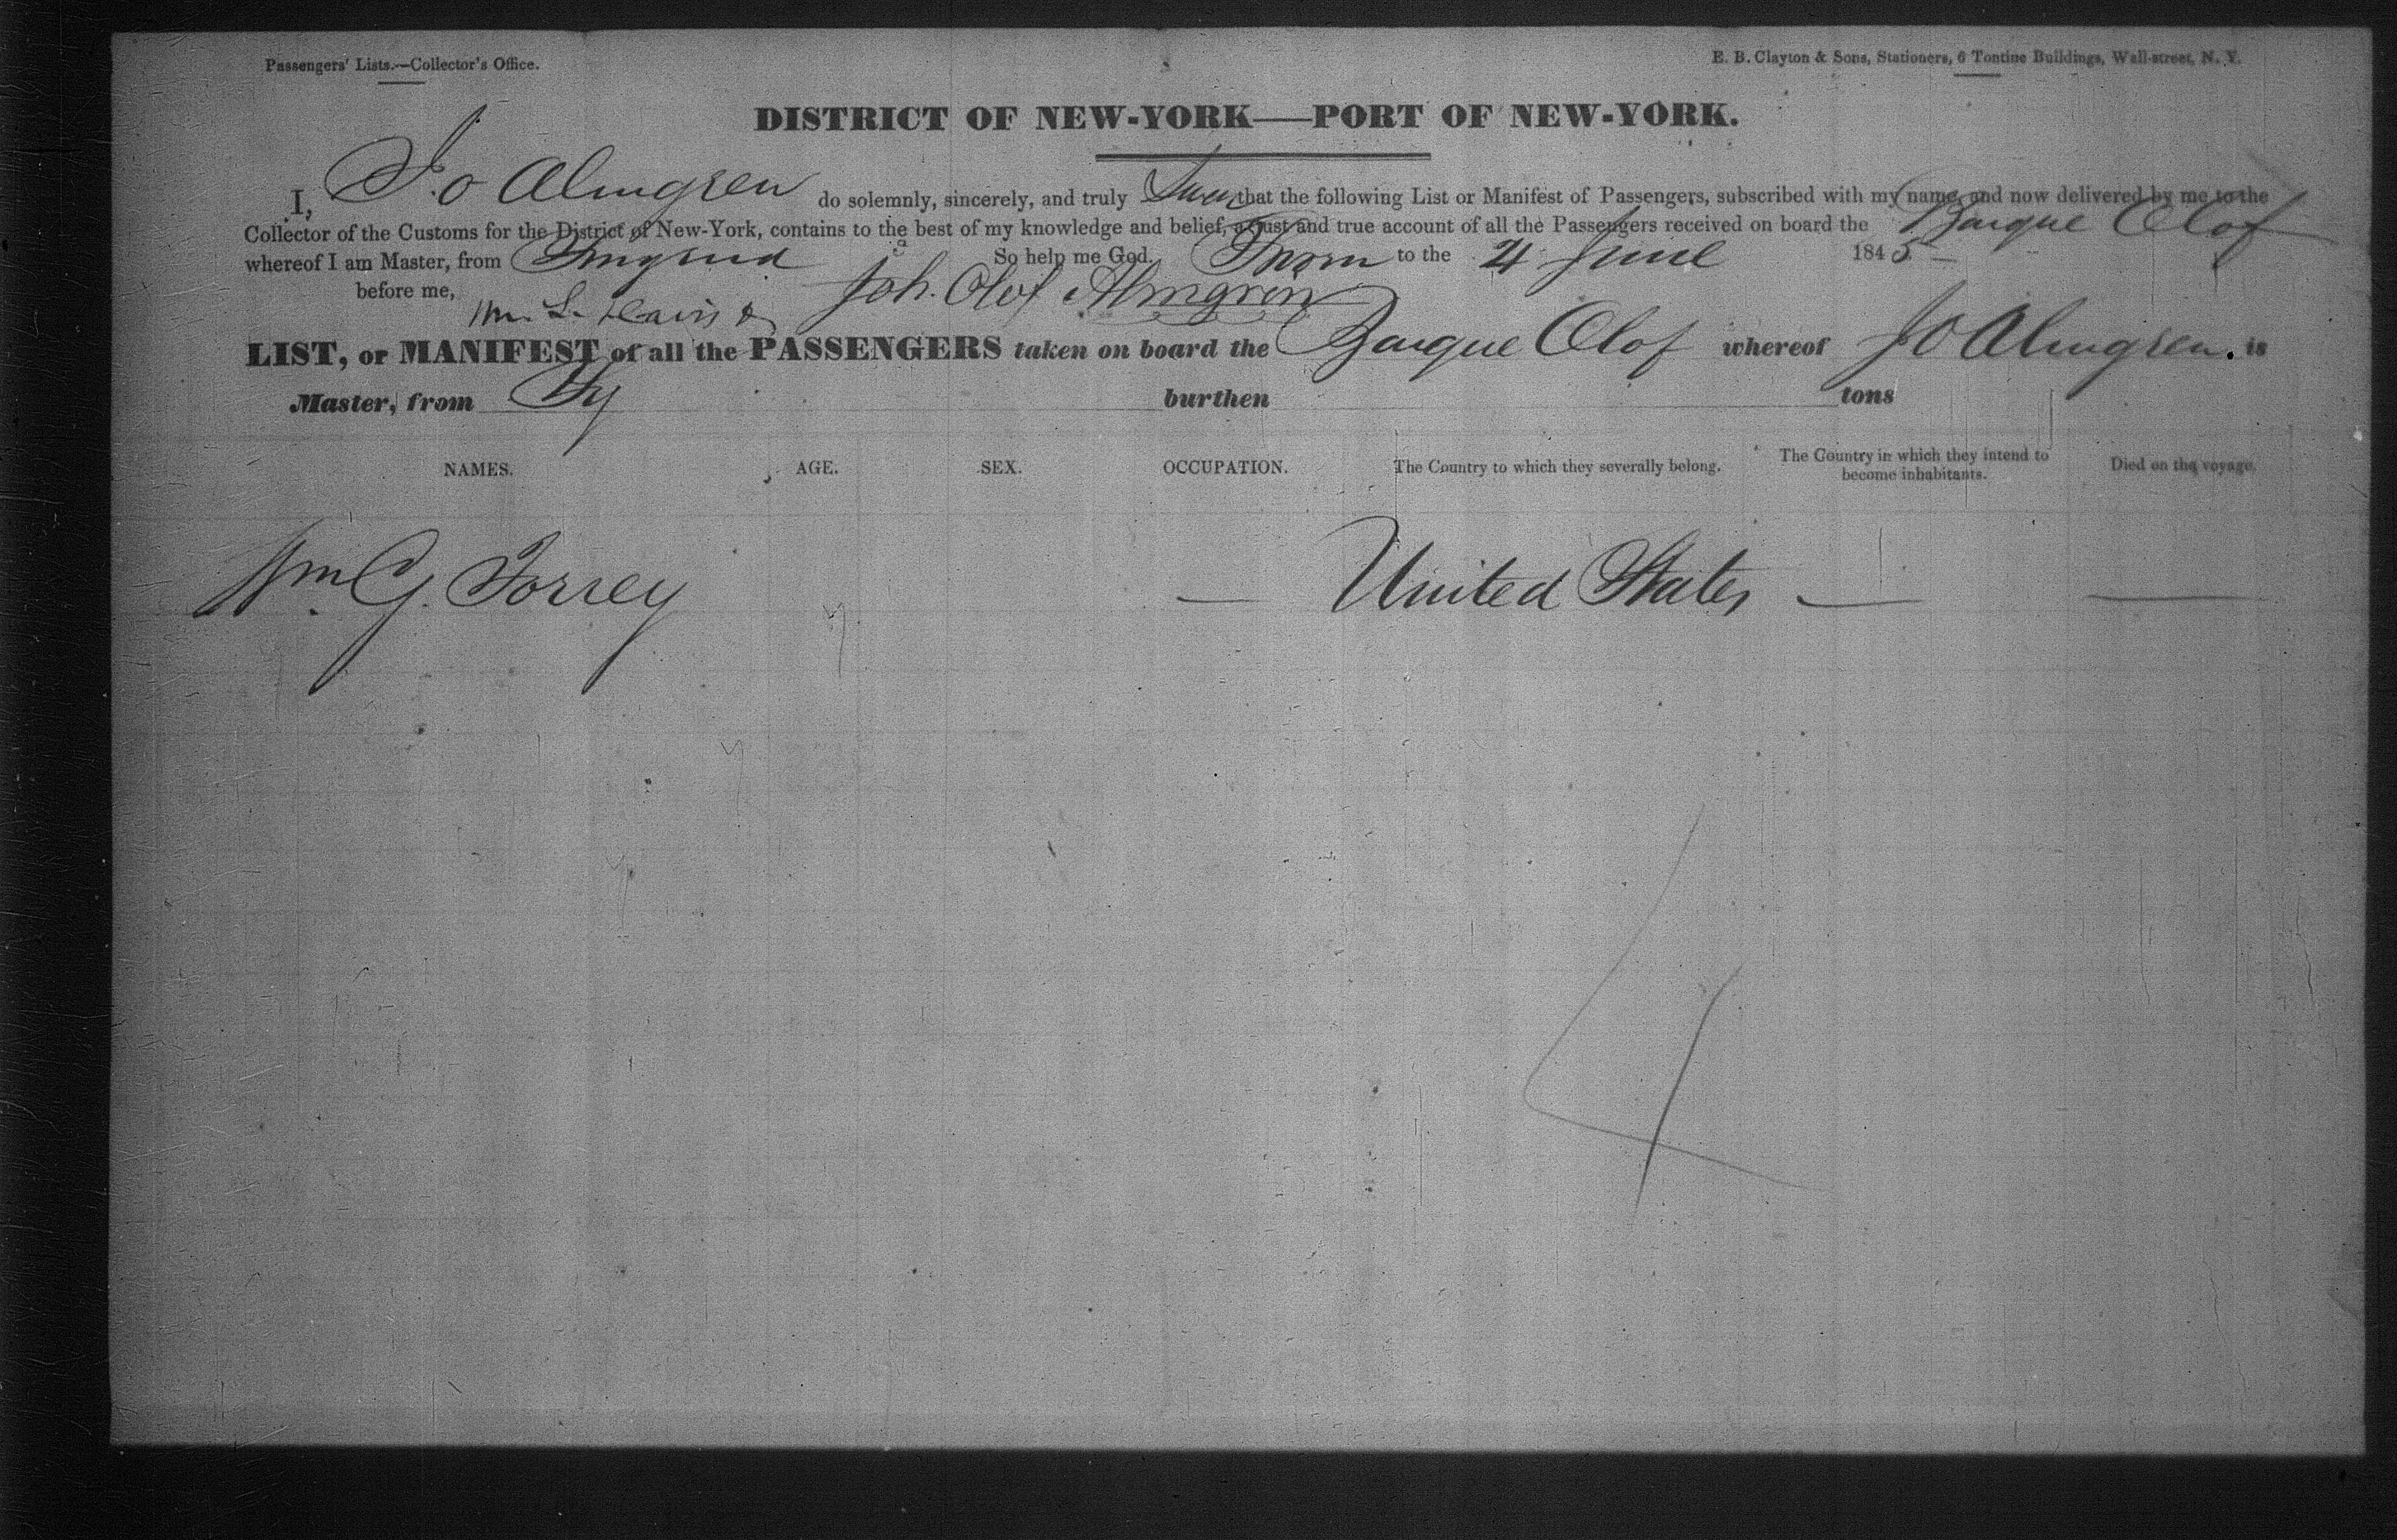 Passengers' Lists.—Collector's Office.
E. B. Clayton & Sons, Stationers, 6 Tontine Buildings, Wall-street, N. Y.
DISTRICT OF NEW-YORK—PORT OF NEW-YORK.
I, J. O Almgren do solemnly, sincerely, and truly Swear that the following List or Manifest of Passengers, subscribed with my name, and now delivered by me to the
Collector of the Customs for the District of New-York, contains to the best of my knowledge and belief, a just and true account of all the Passengers received on board the Barque Olof
whereof I am Master, from So help me God. Sworn to the 4 June 1845
before me, Joh. Olof Almgren
LIST, or MANIFEST of all the PASSENGERS taken on board the Barque Olof whereof J O Almgren. is
Master, from burthen tons
NAMES. AGE. SEX. OCCUPATION. The Country to which they severally belong. The Country in which they intend to become inhabitants. Died on the voyage.
Wm. G. Torrey — United States — —
4